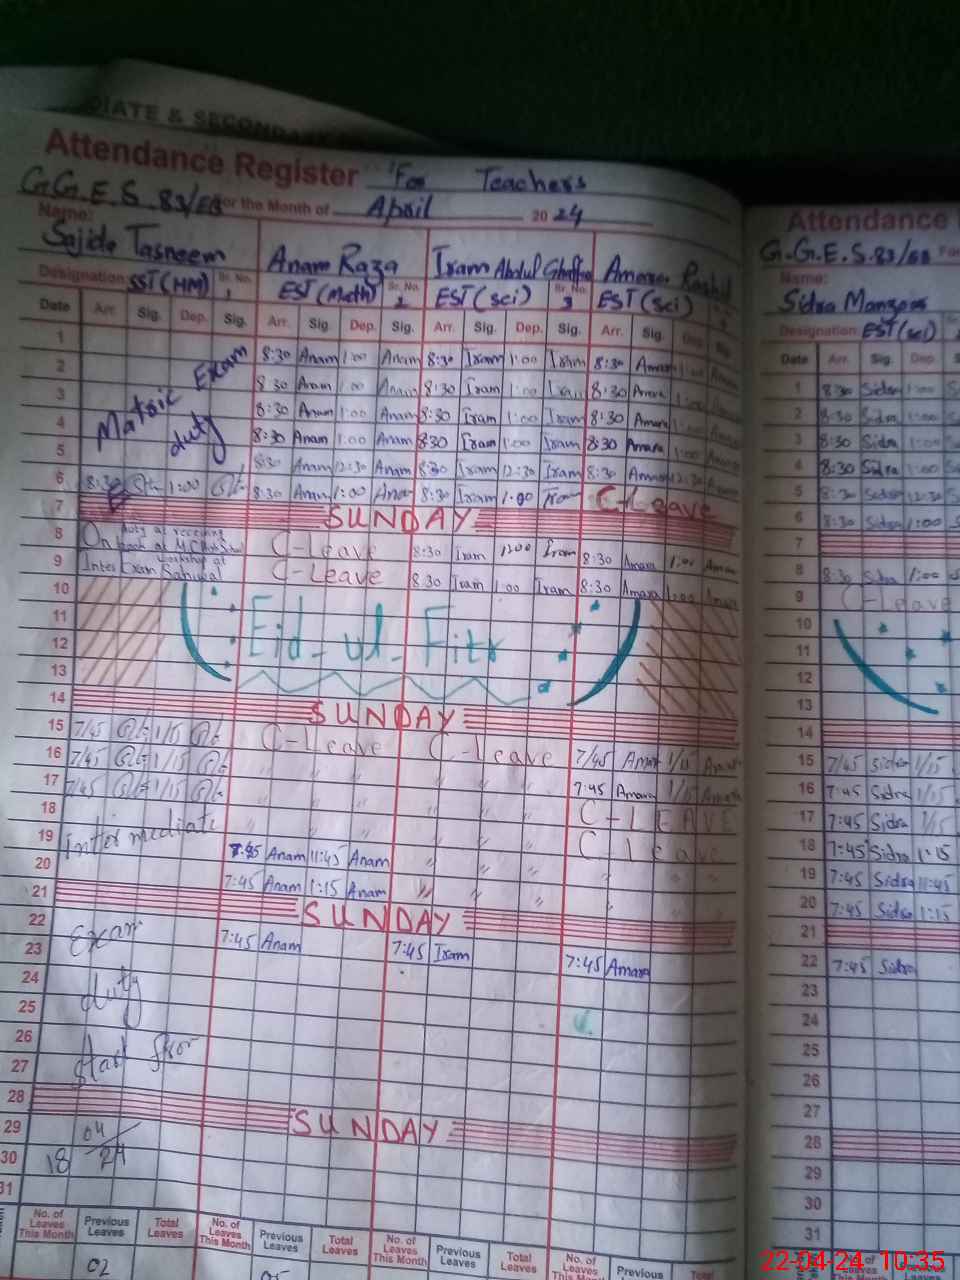 DIATE & SECONDARY
Attendance Register For Teachers
G.G.E.S. 83/EB For the Month of April 2024
Name:
Sajida Tasneem Anam Raza Iram Abdul Ghaffar
Designation SST (HM) Sr. No. 1 EST (Math) Sr. No. 2 EST (sci) Sr. No. 3 EST (sci)
Date Arr. Sig. Dep. Sig. Arr. Sig. Dep. Sig. Arr. Sig. Dep. Sig. Arr. Sig. Dep.
1 8:30 Anam 1:00 Anam 8:30 Iram 1:00 Iram 8:30 Amara 1:00 Amara
2 8:30 Anam 1:00 Anam 8:30 Iram 1:00 Iram 8:30 Amara 1:00 Amara
3 8:30 Anam 1:00 Anam 8:30 Iram 1:00 Iram 8:30 Amara 1:00 Amara
4 8:30 Anam 1:00 Anam 8:30 Iram 1:00 Iram 8:30 Amara 1:00 Amara
5 8:30 Anam 12:30 Anam 8:30 Iram 12:30 Iram 8:30 Amara 12:30 Amara
Matric Exam
duty
6 8:30 1:00 8:30 Anam 1:00 Anam 8:30 Iram 1:00 Iram C-Leave
7 SUNDAY
8 On duty at receiving C-Leave 8:30 Iram 1:00 Iram 8:30 Amara 1:00 Amara
9 Inter Exam Sahiwal C-Leave 8:30 Iram 1:00 Iram 8:30 Amara 1:00 Amara
10
11 Eid-ul-Fitr
12
13
14 SUNDAY
15 7/45 1/15 C-Leave C-Leave 7/45 Amara 1/15 Amara
16 7/45 1/15 " " " " 7:45 Amara 1/15 Amara
17 7/45 1/15 " " " " C-LEAVE
18 " " " " C-Leave
19 Intermediate 7:45 Anam 11:45 Anam " " " "
20 7:45 Anam 1:15 Anam " " " "
21 SUNDAY
22 Exam 7:45 Anam 7:45 Iram 7:45 Amara
23
24 duty
25
26 start from
27
28 SUNDAY
29
30 18 04/24
31
No. of Leaves This Month Previous Leaves Total Leaves No. of Leaves This Month Previous Leaves Total Leaves No. of Leaves This Month Previous Leaves Total Leaves No. of Leaves This Month Previous
02 05
Attendance
G.G.E.S. 83/EB
Name:
Sidra Manzoor
Designation EST (sci)
Date Arr. Sig. Dep.
1 8:30 Sidra 1:00
2 8:30 Sidra 1:00
3 8:30 Sidra 1:00
4 8:30 Sidra 1:00
5 8:30 Sidra 12:30
6 8:30 Sidra 1:00
7
8 8:30 Sidra 1:00
9 C-Leave
10
11
12
13
14
15 7/45 Sidra 1/15
16 7:45 Sidra 1/15
17 7:45 Sidra 1/15
18 7:45 Sidra 1:15
19 7:45 Sidra 11:45
20 7:45 Sidra 1:15
21
22 7:45 Sidra
23
24
25
26
27
28
29
30
31
22-04-24 10:35